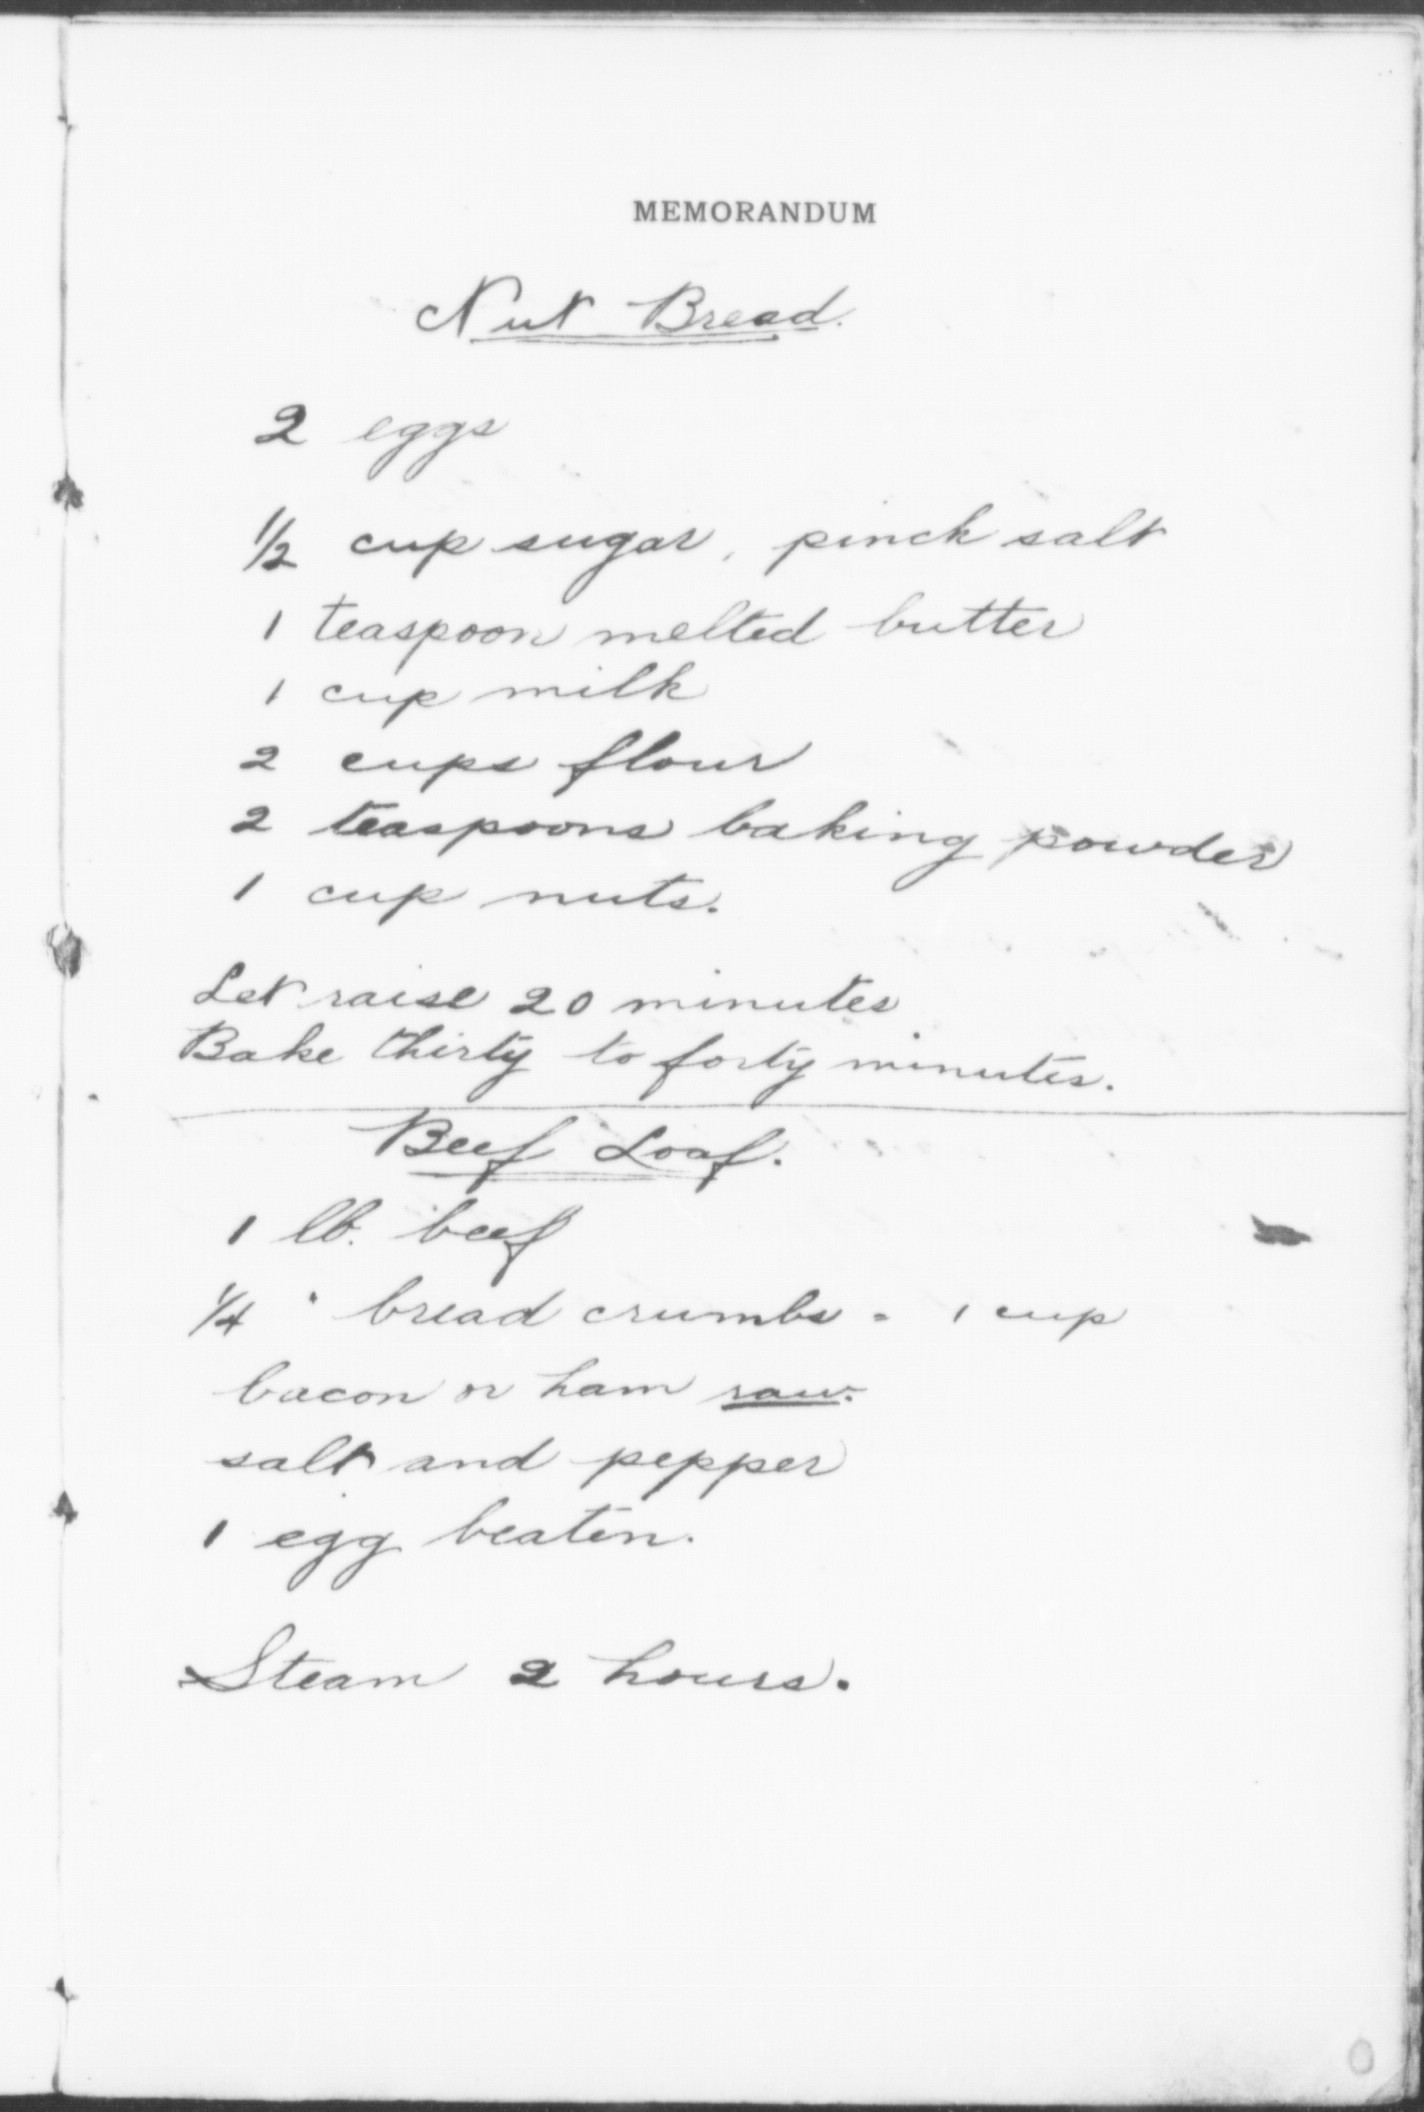 MEMORANDUM
Nut Bread.
2 eggs
1/2 cup sugar, pinch salt
1 teaspoon melted butter
1 cup milk
2 cups flour
2 teaspoons baking powder
1 cup nuts.
Let raise 20 minutes
Bake thirty to forty minutes.
Beef Loaf.
1 lb. beef
1/4 " bread crumbs = 1 cup
bacon or ham raw.
salt and pepper
1 egg beaten.
Steam 2 hours.